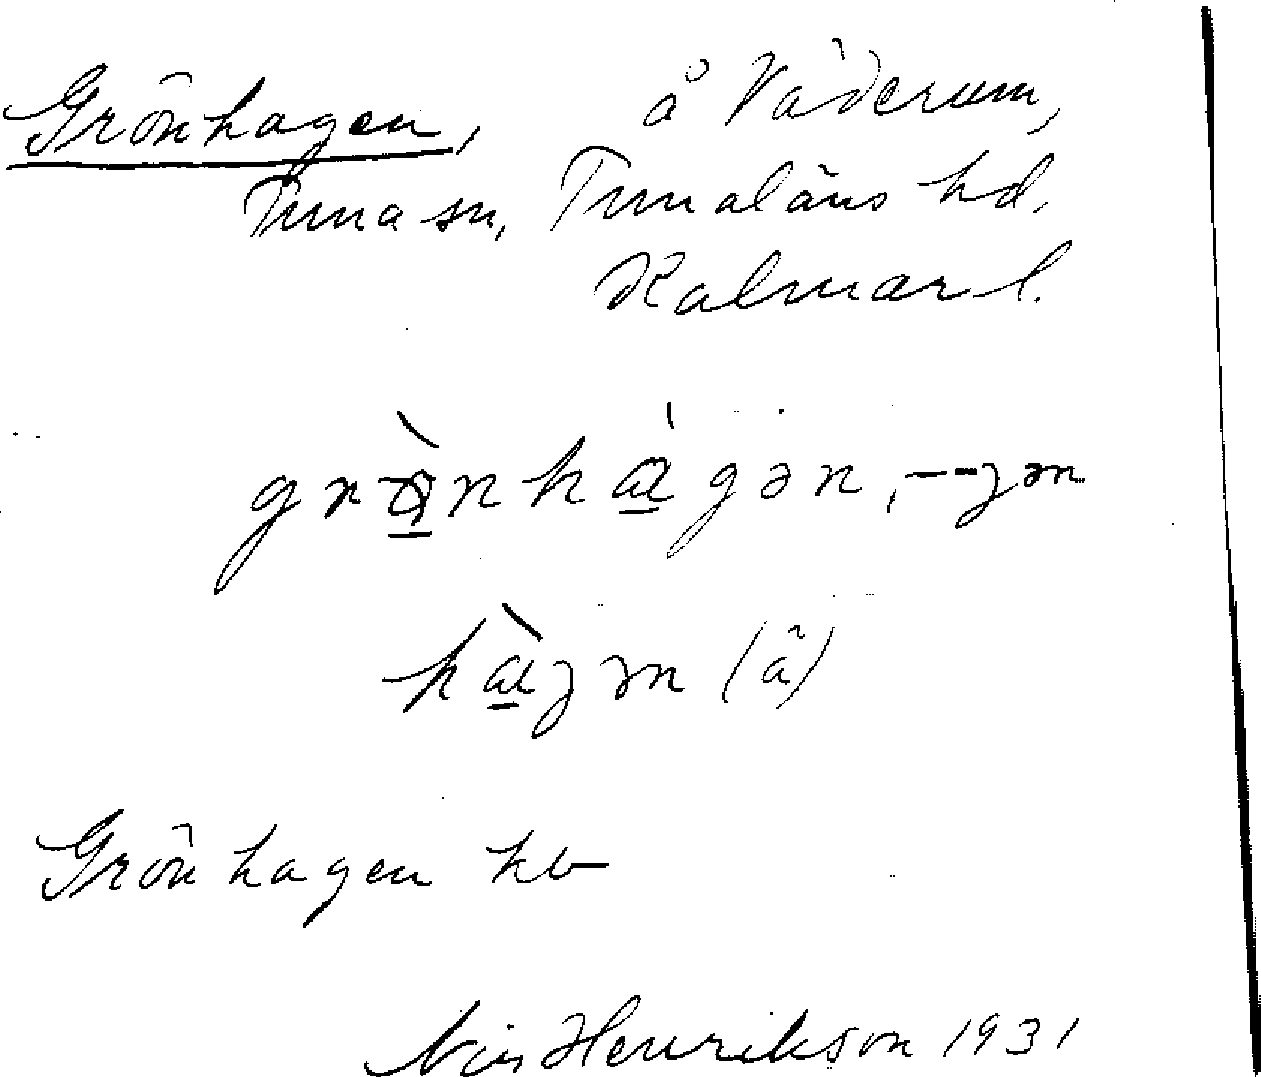 Grönhagen, å Väderum,
Tuna sn, Tunaläns hd,
Kalmar l.
grö̀nhágən, --ʒən
hàʒən (å)
Grönhagen kb
Nils Henrikson 1931